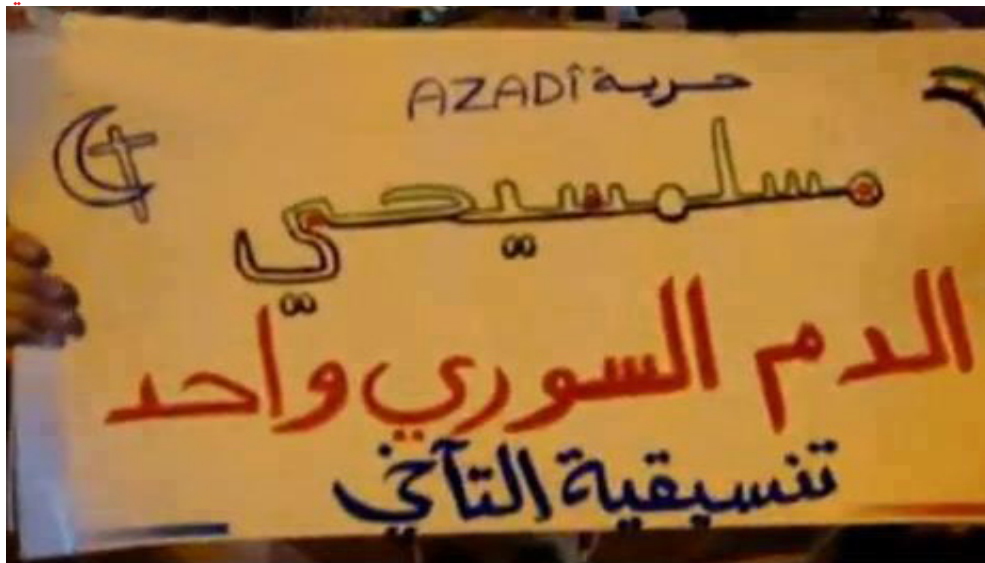 حرية AZADÎ
مسلمسيحي
الدم السوري واحد
تنسيقية التآخي